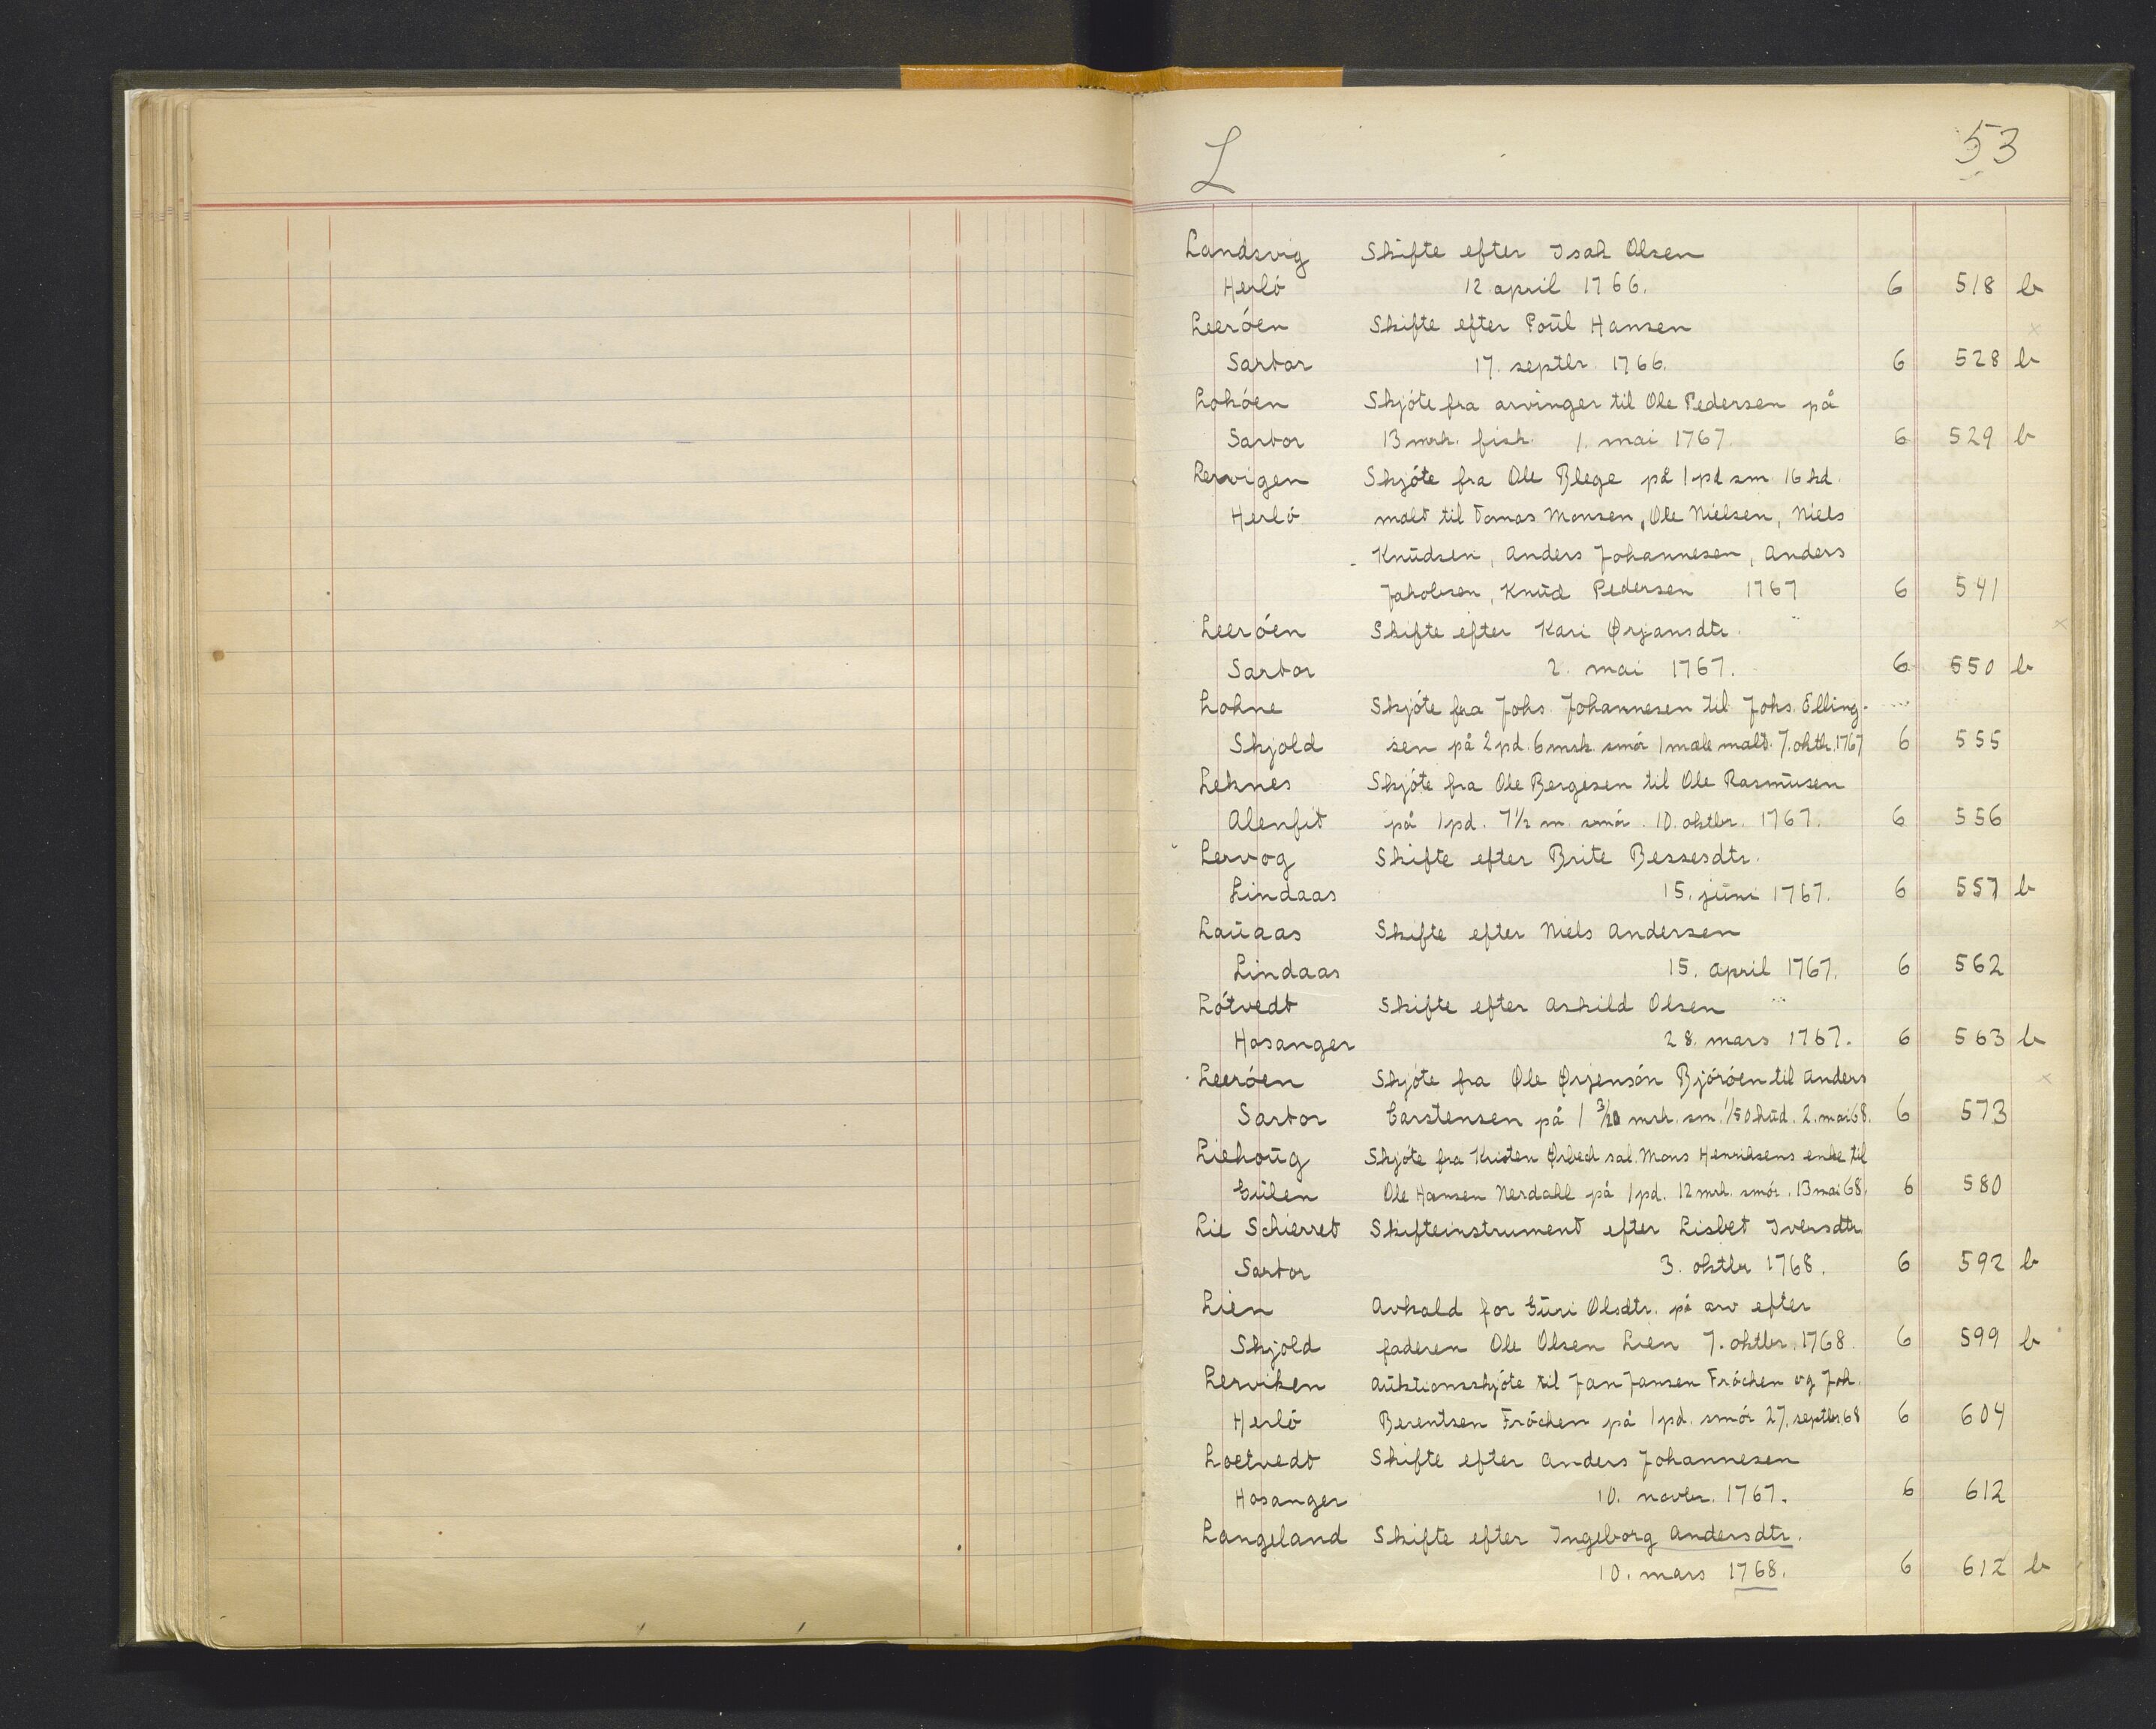 L 53
Landsvig Skifte efter Isak Olsen
Herlö 12 april 1766. 6 518 b
Leeröen Skifte efter Poül Hansen x
Sartor 17. septbr. 1766. 6 528 b
Lokøen Skjöte fra arvinger til Ole Pedersen på
Sartor 13 mrk. fisk. 1. mai 1767. 6 529 b
Lervigen Skjöte fra Ole Blege på 1 pd sm 16 kd.
Herlö malt til Tomas Monsen, Ole Nielsen, Niels
Knüdsen, Anders Johannesen, Anders
Jakobsen, Knüd Pedersen 1767 6 541
Leeröen Skifte efter Kari Ørjansdtr. x
Sartor 2. mai 1767. 6 550 b
Lohne Skjöte fra Johs. Johannesen til Johs. Elling-
Skjold sen på 2 pd. 6 mrk. smör 1 mæle malt. 7. oktbr. 1767 6 555
Leknes Skjöte fra Ole Bergesen til Ole Rasmüsen
Alenfit på 1 pd. 7½ m. smör. 10. oktbr. 1767. 6 556
Lervog Skifte efter Brite Bessesdtr.
Lindaas 15. jüni 1767. 6 557 b
Laüaas Skifte efter Niels Andersen
Lindaas 15. april 1767. 6 562
Lötvedt Skifte efter Askild Olsen
Hosanger 28. mars 1767. 6 563 b
Leeröen Skjöte fra Ole Ørjensön Björöen til Anders x
Sartor Carstensen på 1 3/20 mrk. sm. 1/50 hüd. 2. mai 68. 6 573
Liehoüg Skjöte fra Kristen Ørbech sal. Mons Henriksens enke til
Gülen Ole Hansen Nerdahl på 1 pd. 12 mrk. smör. 13 mai 68. 6 580
Lie Schierret Skifteinstrument efter Lisbet Iversdtr
Sartor 3. oktbr 1768. 6 592 b
Lien Avkald for Güri Olsdtr. på arv efter
Skjold faderen Ole Olsen Lien 7. oktbr. 1768. 6 599 b
Lerviken Aüktionsskjöte til Jan Jansen Fröchen og Joh.
Herlö Berentsen Fröchen på 1 pd. smör 27. septbr. 68 6 604
Loetvedt Skifte efter Anders Johannesen
Hosanger 10. novbr. 1767. 6 612
Langeland Skifte efter Ingeborg Andersdtr.
10. mars 1768. 6 612 b